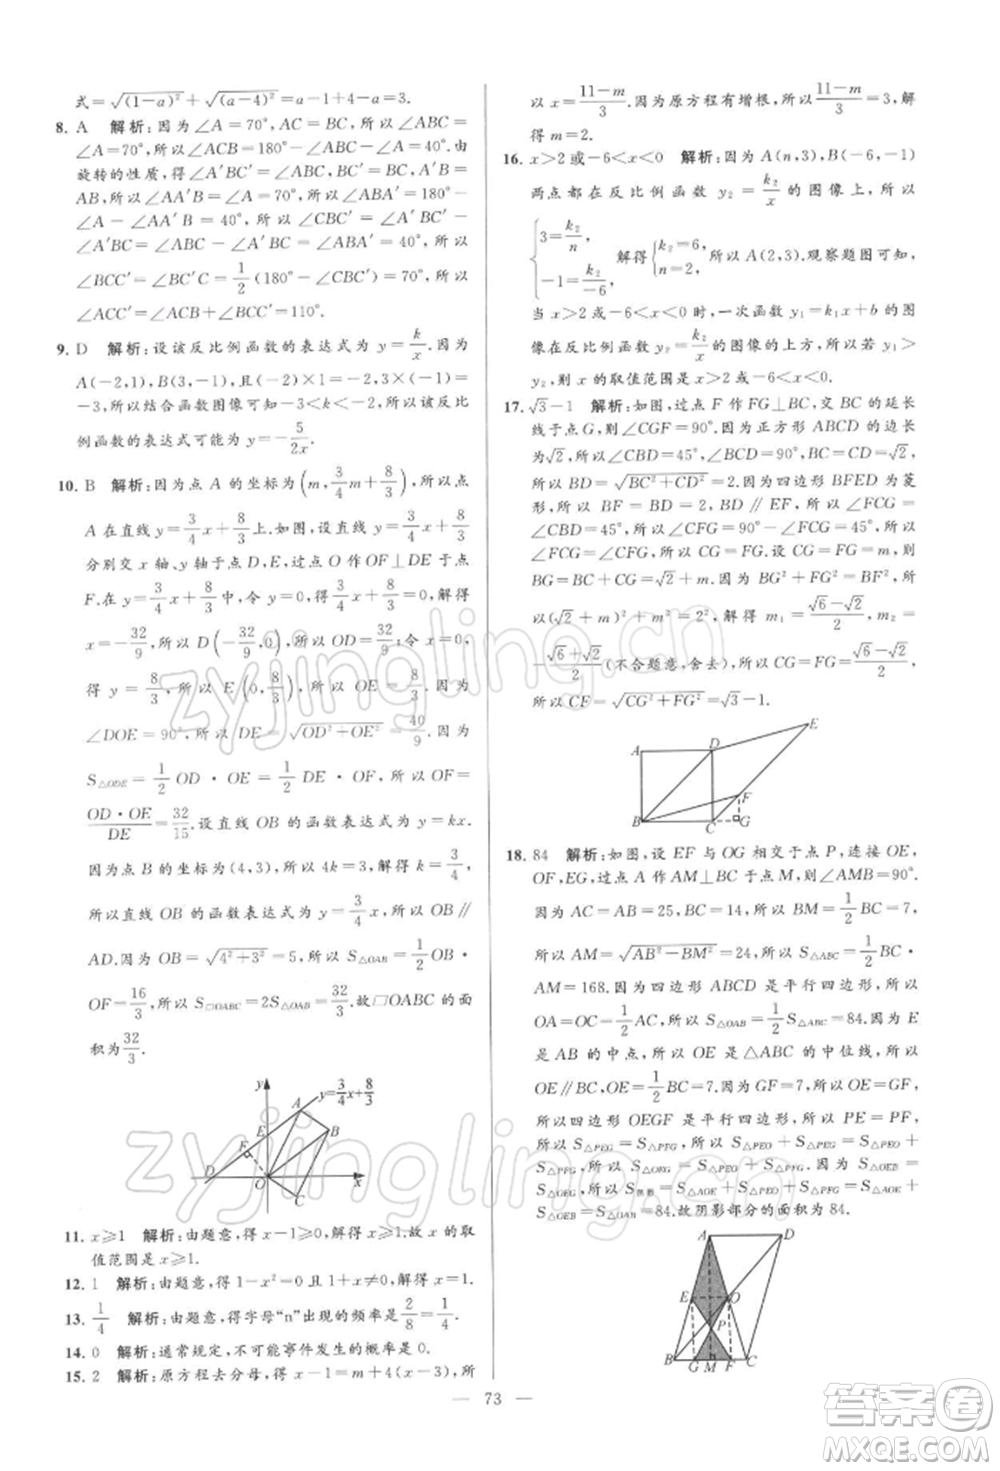 式=√(1-a)²+√(a-4)²=a-1+4-a=3.
8. A 解析:因为∠A=70°,AC=BC,所以∠ABC=
∠A=70°,所以∠ACB=180°-∠ABC-∠A=40°.由
旋转的性质,得∠A'BC'=∠ABC=70°,A'B=
AB,所以∠AA'B=∠A=70°,所以∠ABA'=180°-
∠A-∠AA'B=40°,所以∠CBC'=∠A'BC'-
∠A'BC=∠ABC-∠A'BC=∠ABA'=40°,所以
∠BCC'=∠BC'C=1/2(180°-∠CBC')=70°,所以
∠ACC'=∠ACB+∠BCC'=110°.
9. D 解析:设该反比例函数的表达式为y=k/x.因为
A(-2,1),B(3,-1),(-2)×1=-2,3×(-1)=
-3,所以结合函数图像可知-3<k<-2,所以该反比
例函数的表达式可能为y=-5/2x.
10. B 解析:因为点A的坐标为(m,3/4m+8/3),所以点
A在直线y=3/4x+8/3上.如图,设直线y=3/4x+8/3
分别交x轴、y轴于点D,E,过点O作OF⊥DE于点
F.在y=3/4x+8/3中,令y=0,得3/4x+8/3=0,解得
x=-32/9,所以D(-32/9,0),所以OD=32/9;令x=0,
得y=8/3,所以E(0,8/3),所以OE=8/3.因为
∠DOE=90°,所以DE=√OD²+OE²=40/9.因为
S△ODE=1/2OD·OE=1/2DE·OF,所以OF=
OD·OE/DE=32/15.设直线OB的函数表达式为y=kx.
因为点B的坐标为(4,3),所以4k=3,解得k=3/4,
所以直线OB的函数表达式为y=3/4x,所以OB∥
AD.因为OB=√4²+3²=5,所以S△OAB=1/2OB·
OF=16/3,所以S□OABC=2S△OAB=32/3.故□OABC的面
积为32/3.
y
A
y=3/4x+8/3
B
E
F
D
O
x
C
11. x≥1 解析:由题意,得x-1≥0,解得x≥1.故x的取
值范围是x≥1.
12. 1 解析:由题意,得1-x²=0且1+x≠0,解得x=1.
13. 1/4 解析:由题意,得字母“n”出现的频率是2/8=1/4.
14. 0 解析:通常规定,不可能事件发生的概率是0.
15. 2 解析:原方程去分母,得x-1=m+4(x-3),所
以x=11-m/3.因为原方程有增根,所以11-m/3=3,解
得m=2.
16. x>2或-6<x<0 解析:因为A(n,3),B(-6,-1)
两点都在反比例函数y₂=k₂/x的图像上,所以
{3=k₂/n, -1=k₂/-6, 解得{k₂=6, n=2, 所以A(2,3).观察题图可知,
当x>2或-6<x<0时,一次函数y₁=k₁x+b的图
像在反比例函数y₂=k₂/x的图像的上方,所以若y₁>
y₂,则x的取值范围是x>2或-6<x<0.
17. √3-1 解析:如图,过点F作FG⊥BC,交BC的延长
线于点G,则∠CGF=90°.因为正方形ABCD的边长
为√2,所以∠DBC=45°,∠BCD=90°,BC=CD=√2,
所以BD=√BC²+CD²=2.因为四边形BFED为菱
形,所以BF=BD=2,BD∥EF,所以∠FCG=
∠CBD=45°,所以∠CFG=90°-∠FCG=45°,所以
∠FCG=∠CFG,所以CG=FG.设CG=FG=m,则
BG=BC+CG=√2+m.因为BG²+FG²=BF²,所
以(√2+m)²+m²=2²,解得m₁=√6-√2/2,m₂=
-√6+√2/2(不合题意,舍去),所以CG=FG=√6-√2/2,
所以CF=√CG²+FG²=√3-1.
E
A
D
F
B
C
G
18. 84 解析:如图,设EF与OG相交于点P,连接OE,
OF,EG,过点A作AM⊥BC于点M,则∠AMB=90°.
因为AC=AB=25,BC=14,所以BM=1/2BC=7,
所以AM=√AB²-BM²=24,所以S△ABC=1/2BC·
AM=168.因为四边形ABCD是平行四边形,所以
OA=OC=1/2AC,所以S△OAB=1/2S△ABC=84.因为E
是AB的中点,所以OE是△ABC的中位线,所以
OE∥BC,OE=1/2BC=7.因为GF=7,所以OE=GF,
所以四边形OEGF是平行四边形,所以PE=PF,
所以S△PEG=S△PFG,所以S△PEO+S△PEG=S△PEO+
S△PFG,所以S△OEG=S△PEO+S△PFG.因为S△OEB=
S△OEG,所以S阴影=S△AOE+S△PEO+S△PFG=S△AOE+
S△OEB=S△OAB=84.故阴影部分的面积为84.
A
D
E
O
P
B
G
M
F
C
— 73 —
zyjingling.cn
zyjingling.cn
答案圈
MXQE.COM